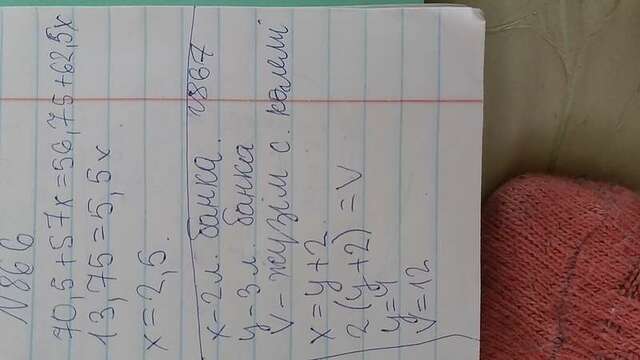 N866
70,5+57x=56,75+62,5x
13,75=5,5x
x=2,5.
N867
x-2л. банка.
y-3л. банка
v-жүзім с. көлемі
x=y+2
2(y+2)=v
y=4
v=12